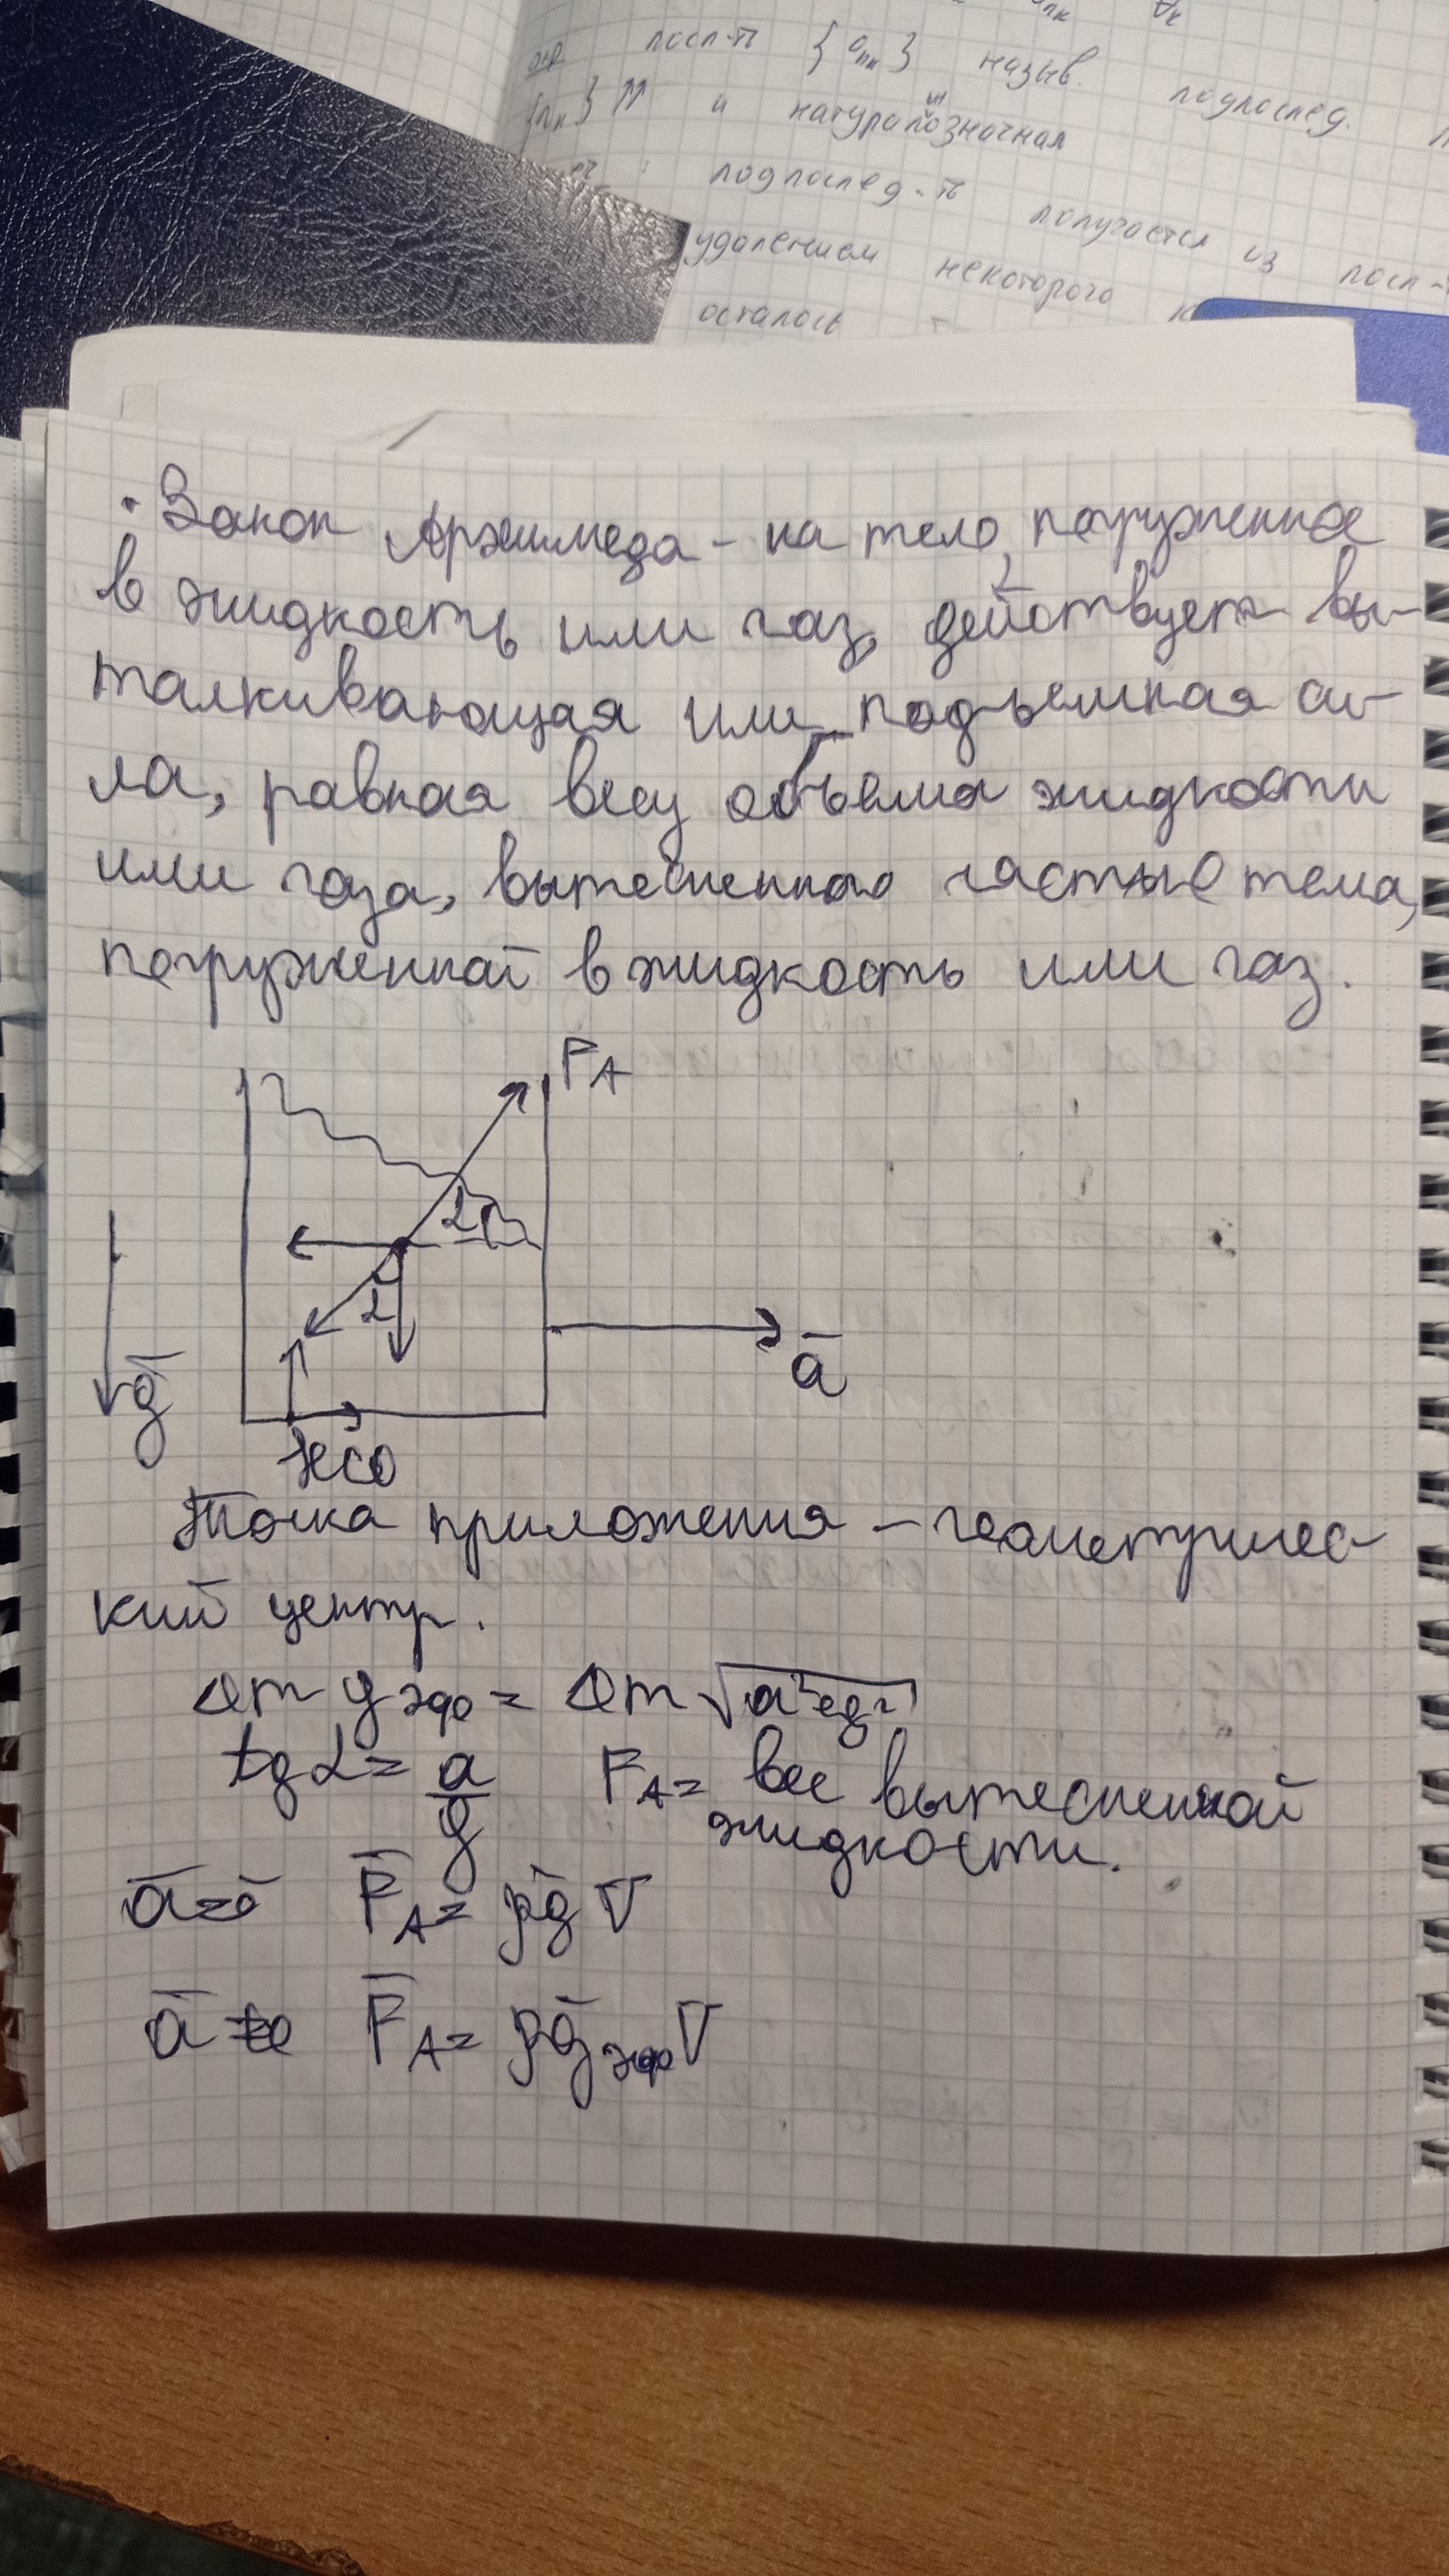 опр посл-ть {a_nk} назыв. подпослед.
{n_k} ⇈ и натуральнозначная
подпослед-ть получается из посл-
удалением некоторого к
осталось
· Закон Архимеда – на тело, погруженное
в жидкость или газ, действует вы-
талкивающая или подъемная си-
ла, равная весу объема жидкости
или газа, вытесненного частью тела,
погруженной в жидкость или газ.
F_A
α
α
a̅
g̅
НСО
Точка приложения – геометричес-
кий центр.
Δm g эфф = Δm √(a²+g²)
tgα = a/g F_A = вес вытесненной
жидкости.
a̅=0 F̅_A = ρg̅V
a̅≠0 F̅_A = ρg̅эффV